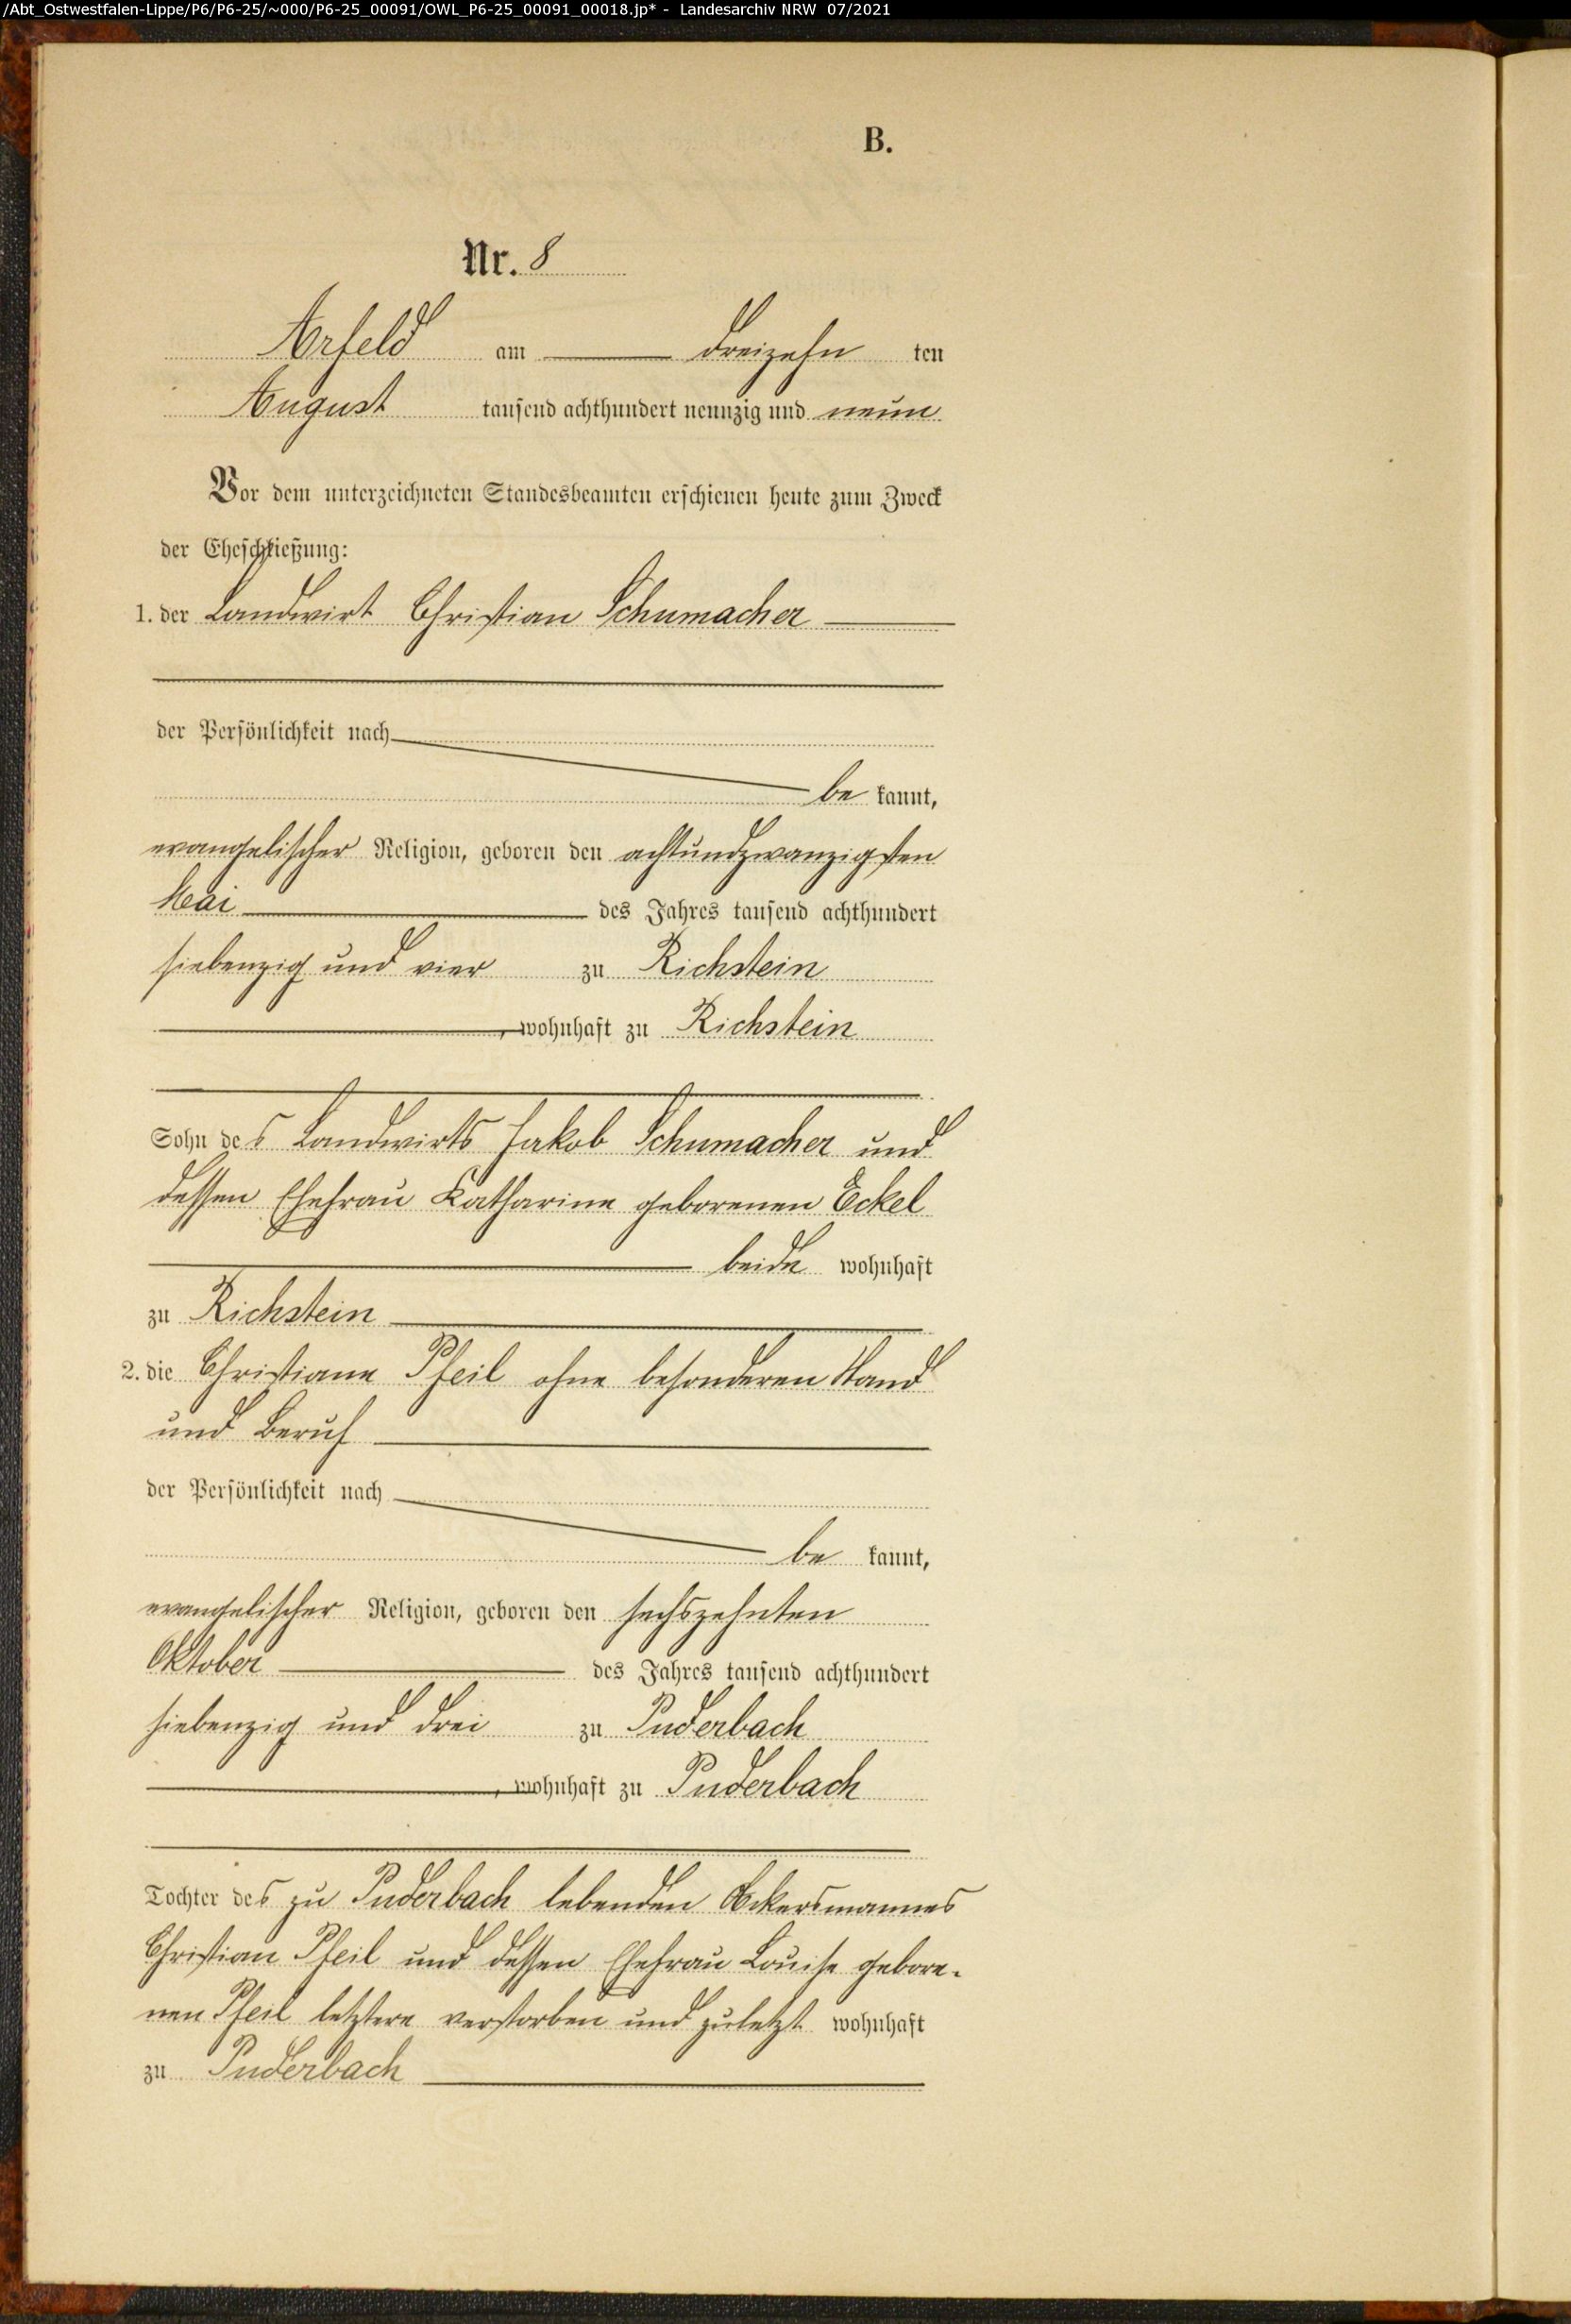 /Abt_Ostwestfalen-Lippe/P6/P6-25/~000/P6-25_00091/OWL_P6-25_00091_00018.jp* - Landesarchiv NRW 07/2021
B.
Nr. 8
Arfeld am dreizehn ten
August tausend achthundert neunzig und neun
Vor dem unterzeichneten Standesbeamten erschienen heute zum Zweck
der Eheschließung:
1. der Landwirt Christian Schumacher
der Persönlichkeit nach
be kannt,
evangelischer Religion, geboren den achtundzwanzigsten
Mai des Jahres tausend achthundert
siebenzig und vier zu Richstein
, wohnhaft zu Richstein
Sohn des Landwirts Jakob Schumacher und
dessen Ehefrau Katharine geborenen Eckel
beide wohnhaft
zu Richstein
2. die Christiane Pfeil ohne besonderen Stand
und Beruf
der Persönlichkeit nach
be kannt,
evangelischer Religion, geboren den sechszehnten
Oktober des Jahres tausend achthundert
siebenzig und drei zu Puderbach
, wohnhaft zu Puderbach
Tochter des zu Puderbach lebenden Ackersmannes
Christian Pfeil und dessen Ehefrau Louise gebore-
nen Pfeil letztere verstorben und zuletzt wohnhaft
zu Puderbach